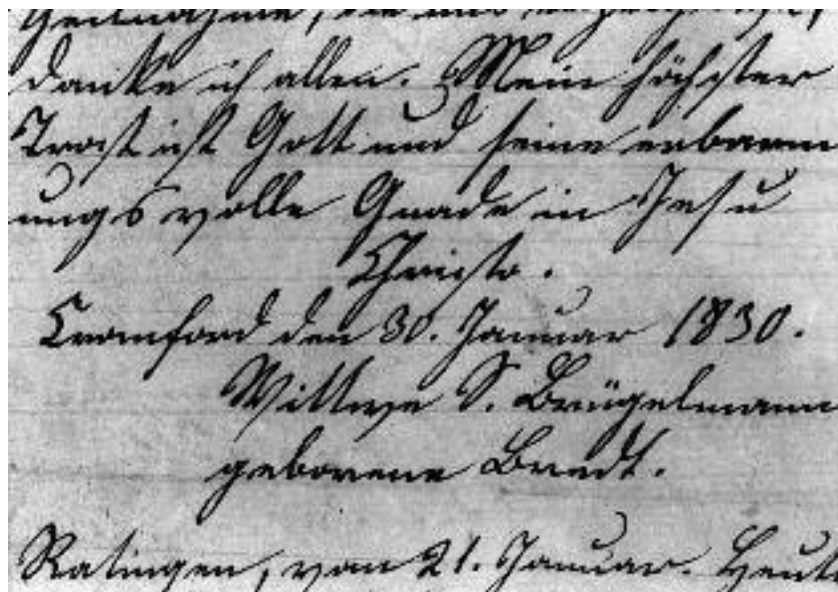 danke ich allen. Mein höchster
Trost ist Gott und seine erbarm
ungsvolle Gnade in Jesu
Christo.
Cromford den 30. Januar 1830.
Wittwe S. Brügelmann
geborene Bredt.
Ratingen, vom 21. Januar. Heute